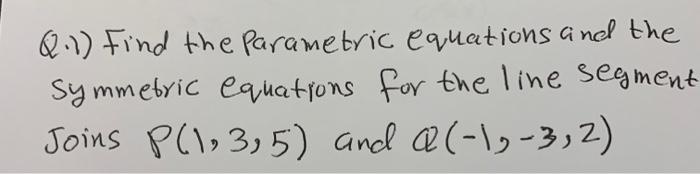 Q.1) Find the Parametric equations and the
Symmetric equations for the line segment
Joins P(1,3,5) and Q(-1,-3,2)